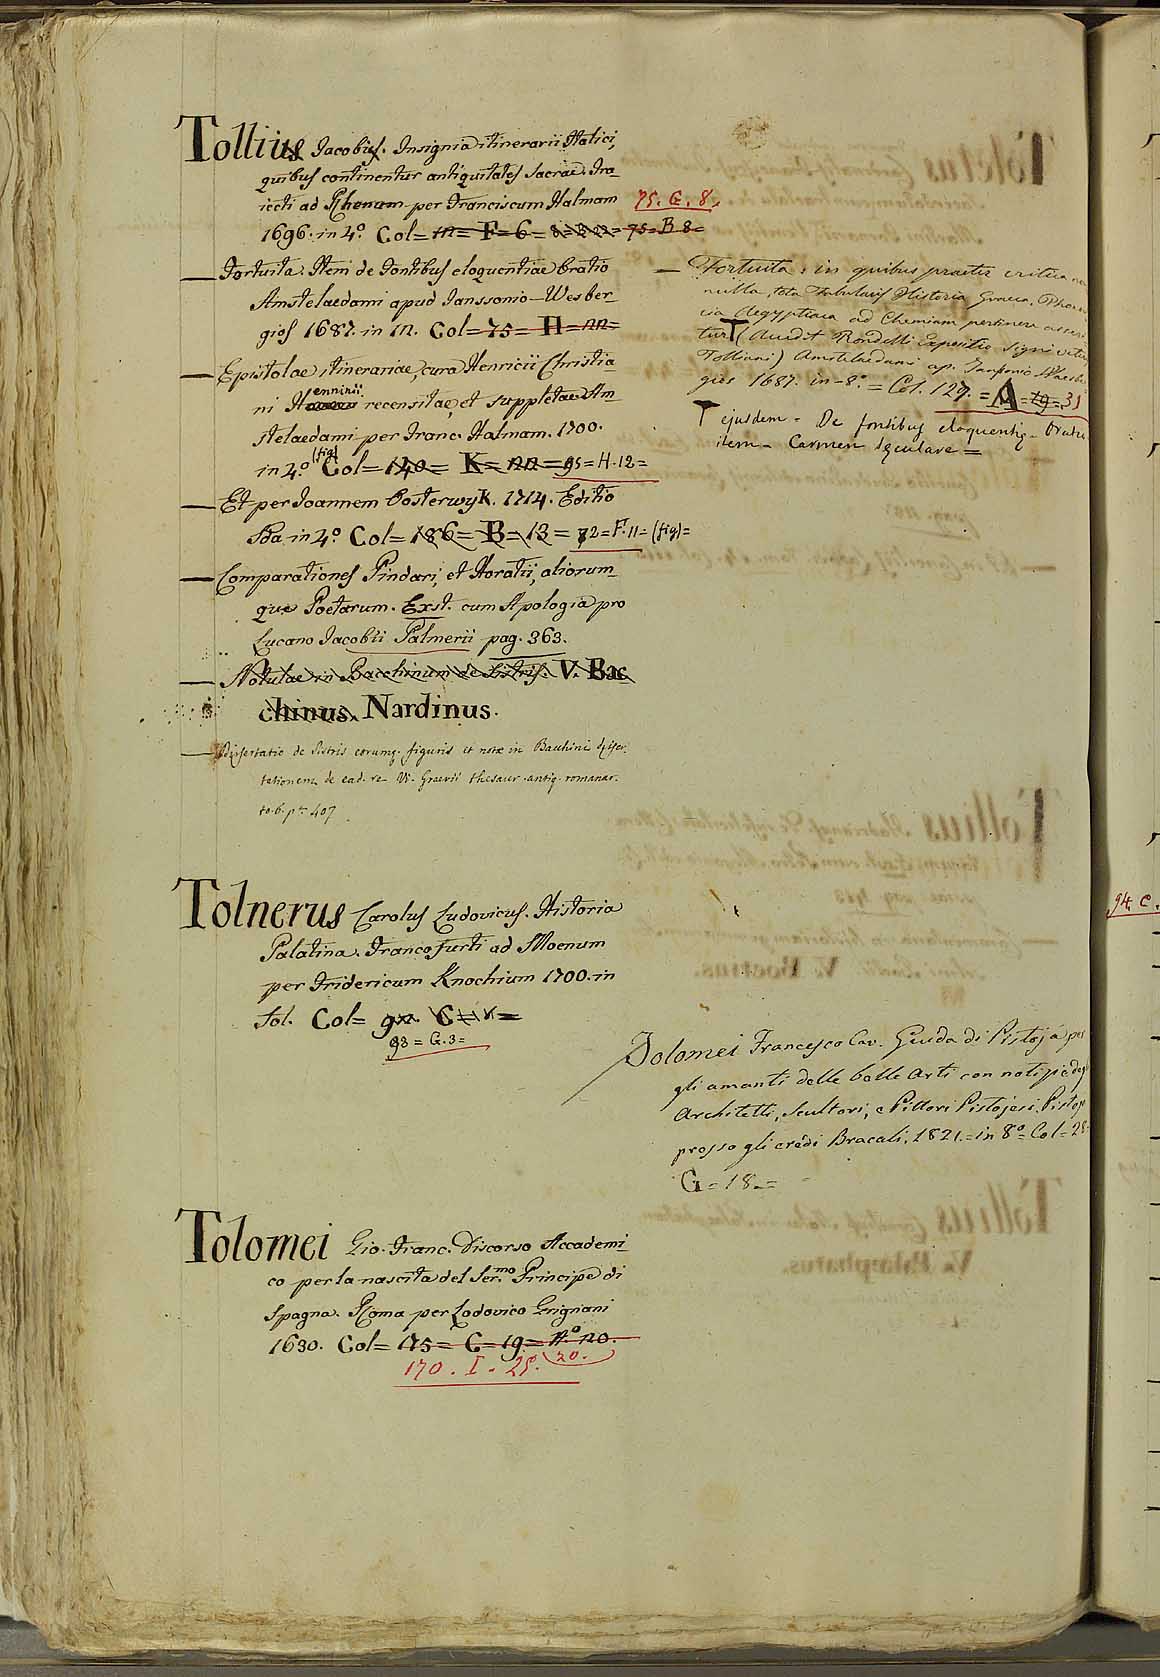 Tollius Jacobus. Insignia itinerarii Italici,
quibus continentur antiquitates Sacrae. Tra_
iecti ad Rhenum per Franciscum Halmam
75. G. 8.
1696. in 4.° Col= = F=6= = 75=B 8=
— Fortuita. Item de Fontibus eloquentiae Oratio
Amstelaedami apud Janssonio—Wesber_
gios 1687. in 12. Col=75= H=22=
— Epistolae itinerariae, cura Henricii Christia_
enninii
ni H recensitae, et suppletae Am_
stelaedami per Franc. Halmam. 1700.
(fig)
in 4.° Col=140= K=22= 95=H.12=
— Et per Joannem Oosterwyk. 1714. Editio
2da in 4.° Col=186=B=13= 72=F.11=(fig)=
— Comparationes Pindari, et Horatii, aliorum_
que Poetarum. Exst. cum Apologia pro
Lucano Jacobii Palmerii pag. 363.
— Notulae in Bacchinum de Sistris. V. Bac
chinus. Nardinus.
— Dissertatio de Sistris eorumq. figuris et notae in Bacchini disser_
tationem de ead. re Vi. Graevii thesaur. antiq. romanar.
to. 6. p.^ 407
— Fortuita: in quibus praeter critica no
nulla, tota Fabularis Historia Graeca, Phoeni
cia Aegyptiaca ad Chemiam pertinere asseri
tur T (Accedit Rondelli Expositio Signi veteris
Tolliani) Amstelaedami ap. Janssonio Waesber
gios 1687. in-8.° = Col. 129. = A = 19 = 31
T ejusdem - De fontibus eloquentiae - Oratio
item - Carmen seculare =
Tolnerus Carolus Ludovicus. Historia
Palatina. Francofurti ad Moenum
per Fridericum Knochium 1700. in
fol. Col= C=
93=G.3=
Tolomei Francesco Cav. Guida di Pistoja per
gli amanti delle belle Arti con notizie degl
Architetti, Scultori, e Pittori Pistojesi. Pistoja
presso gli eredi Bracali. 1821. = in 8.° = Col=28
G=18=
Tolomei Gio. Franc. Discorso Accademi_
co per la nascita del Ser.mo Principe di
Spagna. Roma per Lodovico Grignani
1630. Col=175=C=19= N.° 20.
170. I. 25. 20.
94. C.